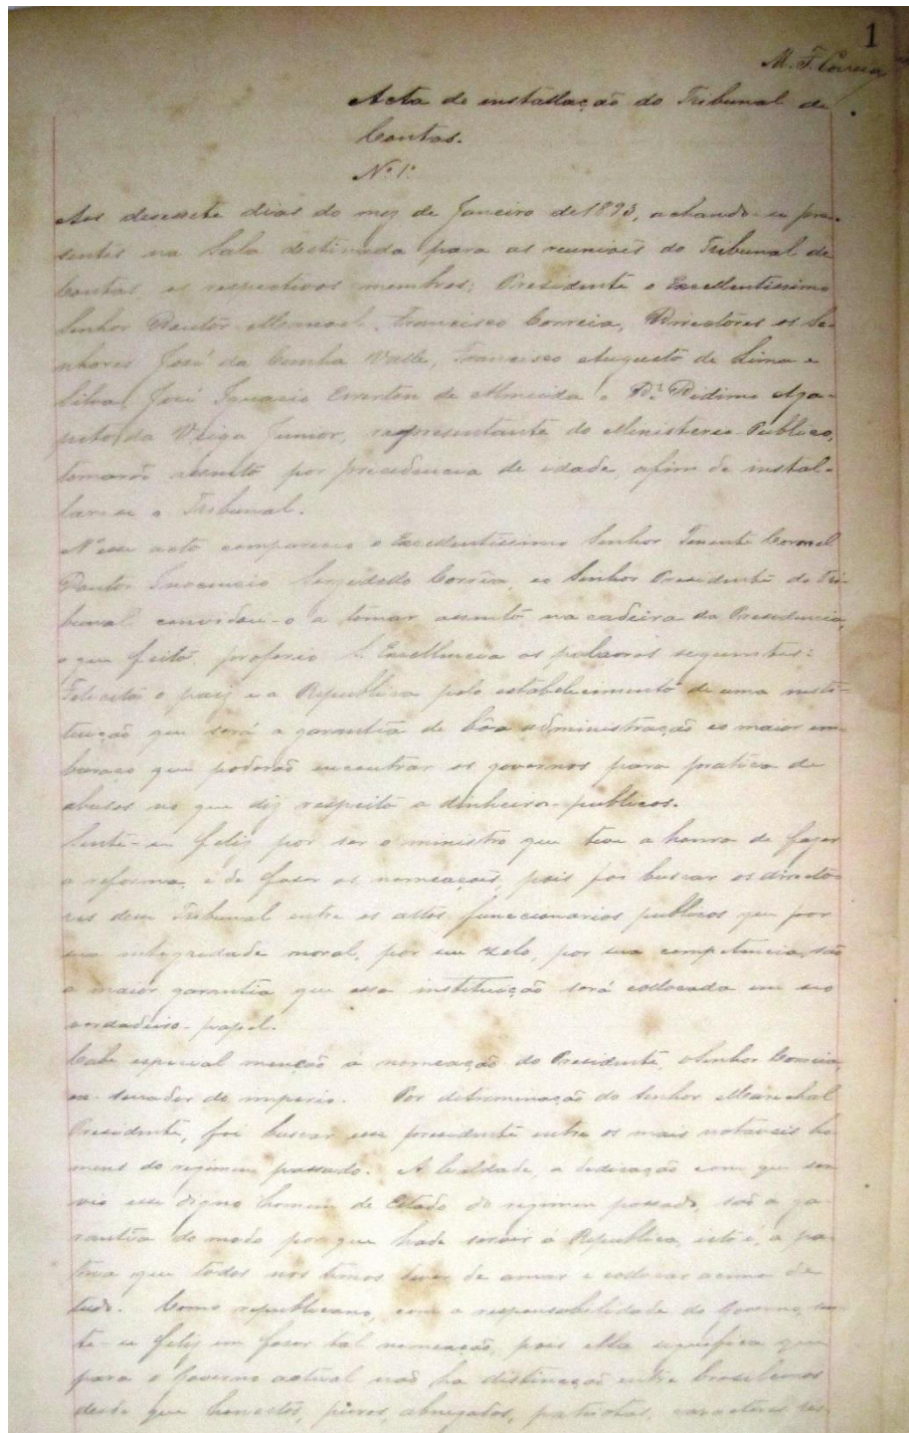 1
M. F. Correia
Acta de installação do Tribunal de
Contas.
Nº 1º
Aos desesete dias do mez de Janeiro de 1893, achando-se pre-
sentes na Sala destinada para as reuniões do Tribunal de
Contas os respectivos membros: Presidente o Excellentissimo
Senhor Doutor Manoel Francisco Correia, Directores os Se-
nhores José da Cunha Valle, Francisco Augusto de Lima e
Silva, José Ignacio Ewerton de Almeida e Dr. Didimo Aga-
pito da Veiga Junior, representante do Ministerio Publico,
tomarão assento por precedencia de idade, afim de instal-
lar-se o Tribunal.
N'esse acto compareceu o Excellentissimo Senhor Tenente Coronel
Doutor Innocencio Serzedello Corrêa, eo Senhor Presidente do Tri-
bunal convidou-o a tomar assento na cadeira da Presidencia,
o que feito, proferio S. Excellencia as palavras seguintes:
Felicita o paiz e a Republica pelo estabelecimento de uma insti-
tuição que será a garantia de bôa administração eo maior em-
baraço que poderão encontrar os governos para pratica de
abusos no que diz respeito a dinheiros publicos.
Sente-se feliz por ser o ministro que teve a honra de fazer
a reforma, e de fazer as nomeações, pois foi buscar os directo-
res desse Tribunal entre os altos funccionarios publicos que por
sua integridade moral, por seu zelo, por sua competencia, são
a maior garantia que essa instituição será collocada em seo
verdadeiro papel.
Cabe especial menção a nomeação do Presidente, o Senhor Correia,
ex-senador do imperio. Por determinação do Senhor Marechal
Presidente, foi buscar esse presidente entre os mais notaveis ho-
mens do regimem passado. A lealdade, a dedicação com que ser-
vio esse digno homem de Estado do regimem passado, são a ga-
rantia do modo por que hade servir á Republica, isto é, a pa-
tria que todos nós temos dever de amar e collocar acima de
tudo. Como republicano, com a responsabilidade do Governo, sen-
te-se feliz em fazer tal nomeação, pois ella significa que
para o Governo actual não ha distincção entre brasileiros
desde que honestos, puros, abnegados, patriotas, caracteres